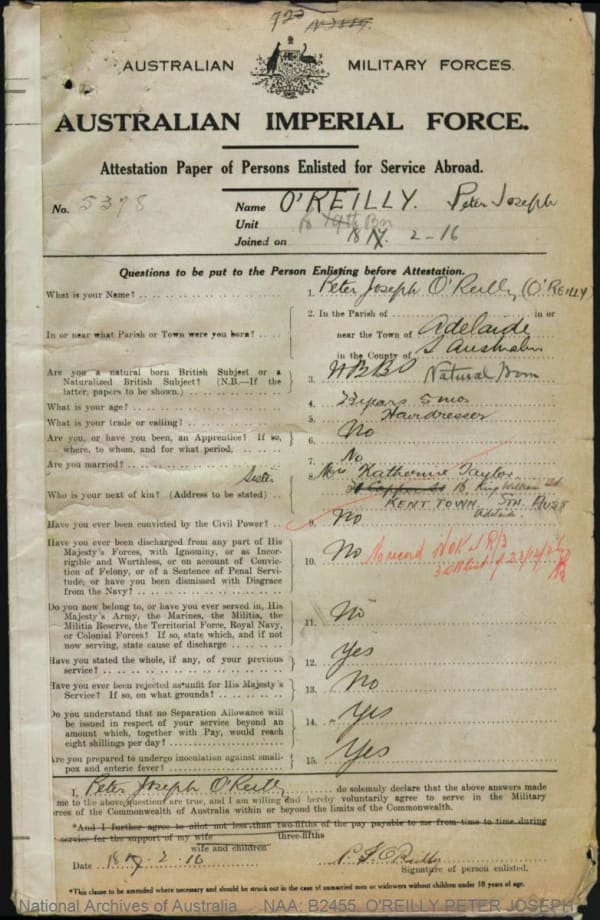 722
AUSTRALIAN MILITARY FORCES.
AUSTRALIAN IMPERIAL FORCE.
Attestation Paper of Persons Enlisted for Service Abroad.
No. 5378 Name O'REILLY. Peter Joseph
Unit
Joined on 18 2-16
Questions to be put to the Person Enlisting before Attestation.
What is your Name? 1. Peter Joseph O'Reilly (O'REILLY)
In or near what Parish or Town were you born? 2. In the Parish of in or
near the Town of Adelaide
in the County of S Australia
Are you a natural born British Subject or a
Naturalized British Subject? (N.B.—If the
latter, papers to be shown.) 3. NBBS Natural Born
What is your age? 4. 23 years 5 mos
What is your trade or calling? 5. Hairdresser
Are you, or have you been, an Apprentice? If so,
where, to whom, and for what period. 6. No
Are you married? 7. No
Who is your next of kin? (Address to be stated) Sister 8. Mrs Katherine Taylor
King William Rd
KENT TOWN, STH. AUS
Adelaide
Have you ever been convicted by the Civil Power? 9. No
Have you ever been discharged from any part of His
Majesty's Forces, with Ignominy, or as Incor-
rigible and Worthless, or on account of Conviction
of Felony, or of a Sentence of Penal Servi-
tude; or have you been dismissed with Disgrace
from the Navy? 10. No No record NOK
Do you now belong to, or have you ever served in, His
Majesty's Army, the Marines, the Militia, the
Militia Reserve, the Territorial Force, Royal Navy,
or Colonial Forces? If so, state which, and if not
now serving, state cause of discharge 11. No
Have you stated the whole, if any, of your previous
service? 12. Yes
Have you ever been rejected as unfit for His Majesty's
Service? If so, on what grounds? 13. No
Do you understand that no Separation Allowance will
be issued in respect of your service beyond an
amount which, together with Pay, would reach
eight shillings per day? 14. Yes
Are you prepared to undergo inoculation against small-
pox and enteric fever? 15. Yes
I, Peter Joseph O'Reilly do solemnly declare that the above answers made
me to the above questions are true, and I am willing and hereby voluntarily agree to serve in the Military
rces of the Commonwealth of Australia within or beyond the limits of the Commonwealth.
*And I further agree to allot not less than two-fifths of the pay payable to me from time to time during
three-fifths
service for the support of my wife
wife and children
Date 18 -2-16 P. J. O'Reilly
Signature of person enlisted.
*This clause to be amended where necessary and should be struck out in the case of unmarried men or widowers without children under 18 years of age.
National Archives of Australia NAA: B2455, O'REILLY PETER JOSEPH